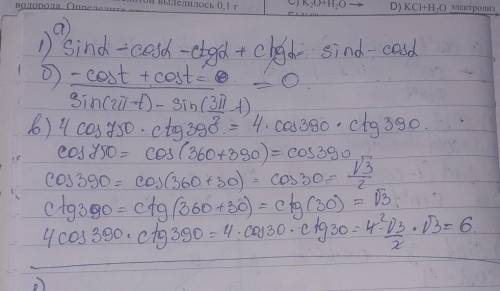 водорода. Определите выделилось 0,1 г
C) K₂O+H₂O→
D) KCl+H₂O электролиз
а)
1) sinα-cosα-ctgα+ctgα= sinα-cosα
б) -cost+cost=0 / sin(2π-t)-sin(3π-t) = 0.
в) 4cos750·ctg390=4·cos390·ctg390.
cos750=cos(360+390)=cos390
cos390=cos(360+30)=cos30=√3/2
ctg390=ctg(360+30)=ctg(30)=√3.
4cos390·ctg390=4·cos30·ctg30=4²·√3/2·√3=6.